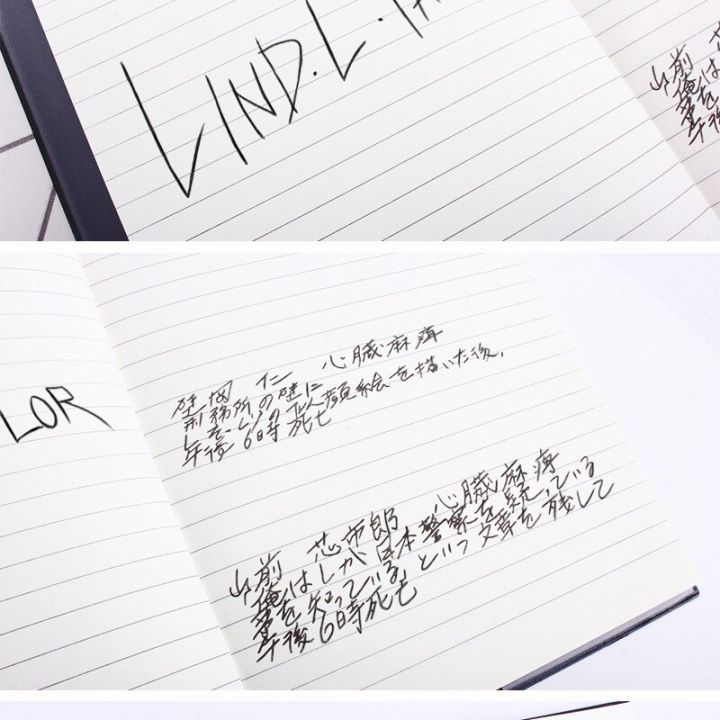 LIND.L.
山前
俺は
事を
午後
LOR
岡 仁 心臓麻痺
刑務所の壁に
似顔絵を描いた後、
午後6時死亡
山前 芯市郎 心臓麻痺
俺はLが日本警察を疑っている
事を知っている。という文章を残して
午後6時死亡